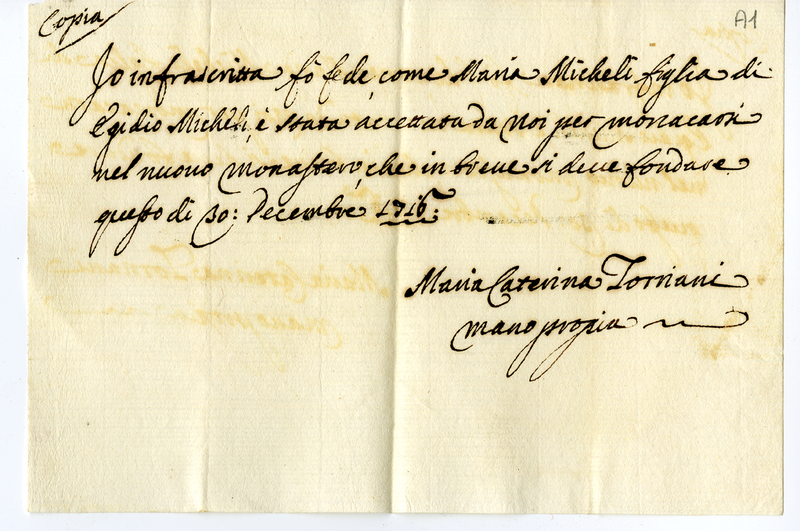 Copia
A1
Io infrascritta fò fede, come Maria Micheli figlia di
Egidio Micheli, è stata accettata da noi per monacarsi
nel nuovo monastero, che in breve si deve fondare
questo di 30: Decembre 1716:
Maria Caterina Torriani
mano propia